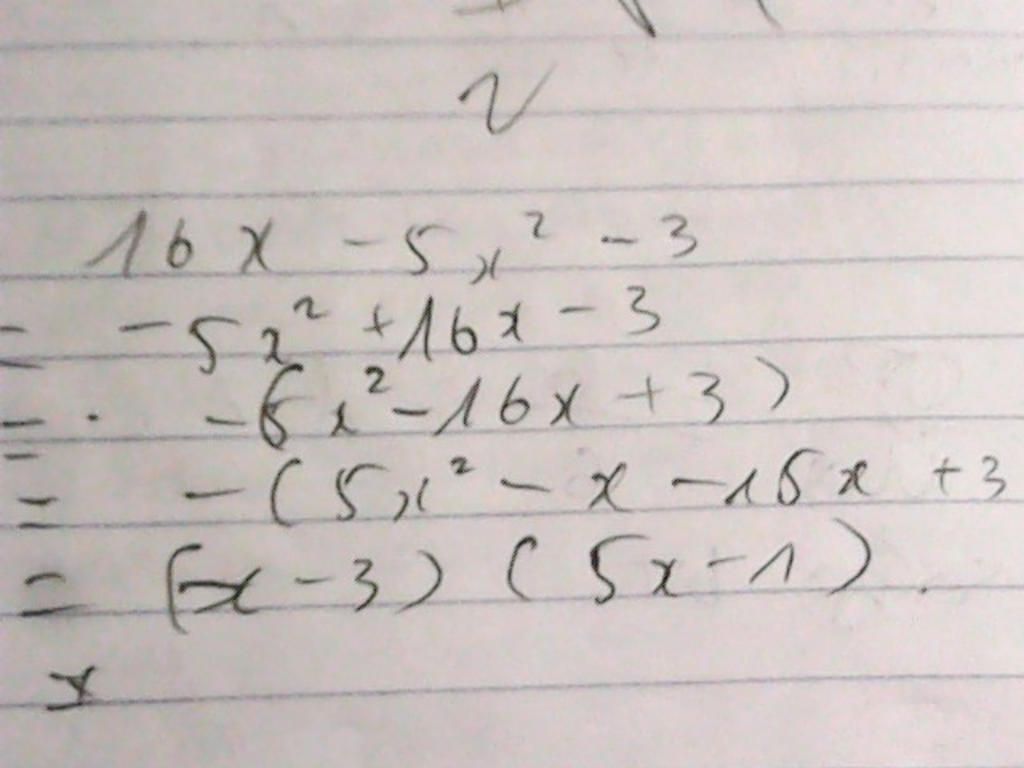 2
16x - 5x² - 3
= -5x² + 16x - 3
= - (5x² - 16x + 3)
= - (5x² - x - 15x + 3
= (-x - 3) (5x - 1).
x